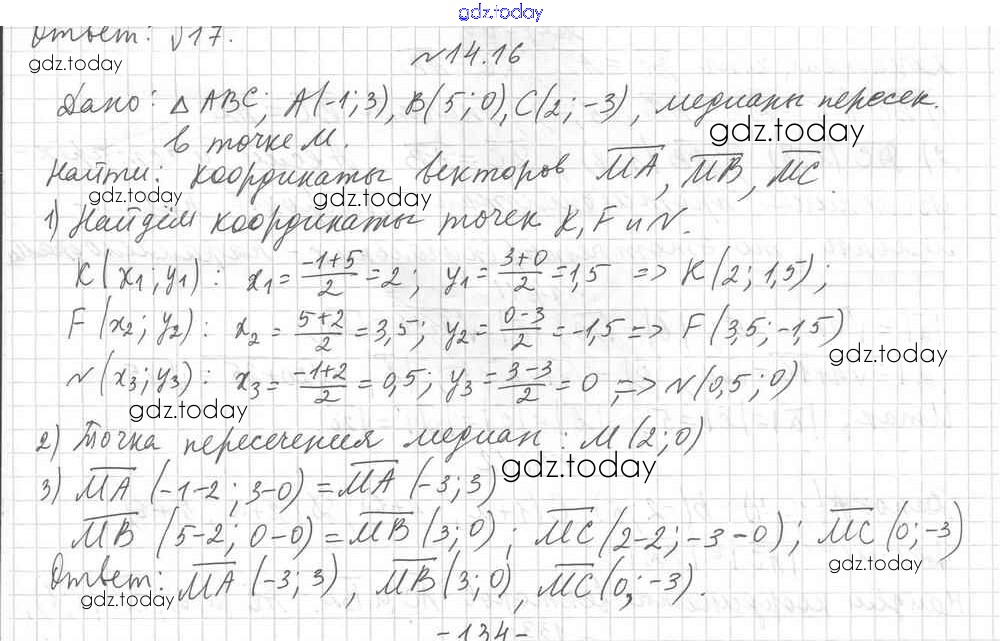 gdz.today
Ответ: √17.
gdz.today
№14.16
Дано: △ ABC; A(-1; 3), B(5; 0), C(2; -3), медианы пересек.
gdz.today
в точке M.
Найти: координаты векторов MA, MB, MC.
gdz.today gdz.today
1) Найдём координаты точек K, F и N.
K(x₁; y₁): x₁ = (-1+5)/2 = 2; y₁ = (3+0)/2 = 1,5 => K(2; 1,5);
F(x₂; y₂): x₂ = (5+2)/2 = 3,5; y₂ = (0-3)/2 = -1,5 => F(3,5; -1,5)
gdz.today
N(x₃; y₃): x₃ = (-1+2)/2 = 0,5; y₃ = (3-3)/2 = 0; => N(0,5; 0)
gdz.today
2) Точка пересечения медиан: M(2; 0)
gdz.today
3) MA(-1-2; 3-0) = MA(-3; 3)
MB(5-2; 0-0) = MB(3; 0); MC(2-2; -3-0); MC(0; -3)
gdz.today
Ответ: MA(-3; 3), MB(3; 0), MC(0; -3).
gdz.today gdz.today
-134-